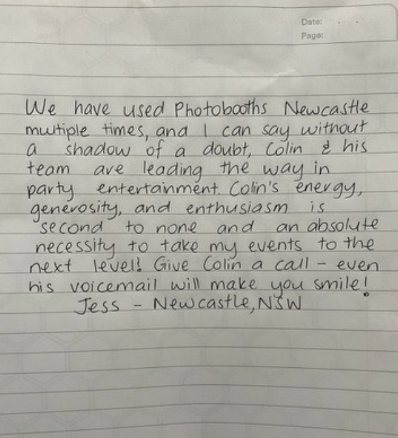 Date:
Page:
We have used Photobooths Newcastle
multiple times, and I can say without
a shadow of a doubt, Colin & his
team are leading the way in
party entertainment. Colin's energy,
generosity, and enthusiasm is
second to none and an absolute
necessity to take my events to the
next level! Give Colin a call - even
his voicemail will make you smile!
Jess - Newcastle, NSW